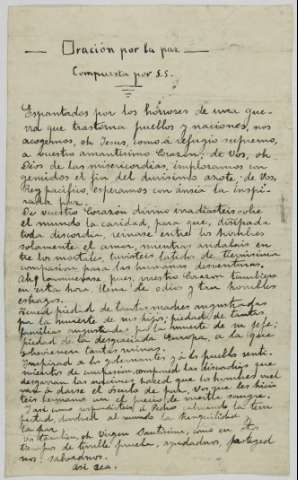 Oración por la paz
Compuesta por S.S.
Espantados por los horrores de una gue-
rra que trastorna pueblos y naciones, nos
acogemos, oh Jesus, como á refugio supremo,
a vuestro amantisimo Corazón; de Vos, oh
Dios de las misericordias, imploramos con
gemidos el fin del durisimo azote; de Vos,
Rey pacífico, esperamos con ánsia la suspi-
rada paz.
De vuestro Corazón divino irradiasteis sobre
el mundo la caridad, para que, disipada
toda discordia, reinase entre los hombres
solamente el amor; mientras andabais en
tre los mortales, tuvisteis latidos de tiernisima
compasion para las humanas desventuras.
Ah! conmuévase pues, vuestro Corazon tambien
en esta hora llena de odios y tan horribles
estragos.
Tened piedad de tantas madres angustiadas
por la suerte de sus hijos; piedad de tantas
familias por la muerte de su jefe;
piedad de la desgraciada Europa, a la que
sobrevienen tantas ruinas.
Inspirad a los gobernantes y a los pueblos senti-
mientos de compasion, componed las discordias que
desgarran las naciones; haced que los hombres vuel
van a darse el ósculo de paz, Vos que les hicis
teis hermanos con el precio de vuestra sangre.
Y así como
al mundo la tranquilidad
y la paz.
oh Virgen Santisima, como en
tiempos de terrible prueba, ayudadnos, proteged
nos, salvadnos.
Así sea.